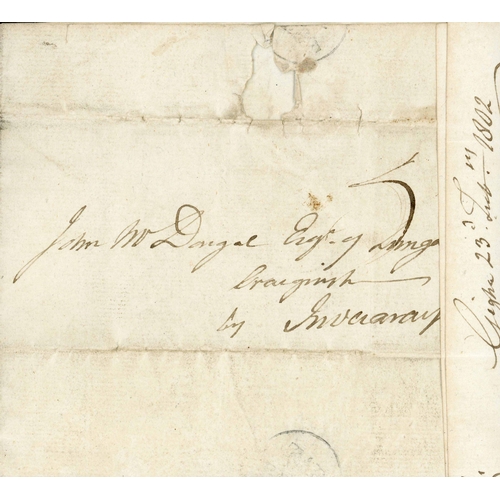 John McDougal Esqr. of Lunga
Craignish
by Inveraray
Gigha 23d. Feb. 1802